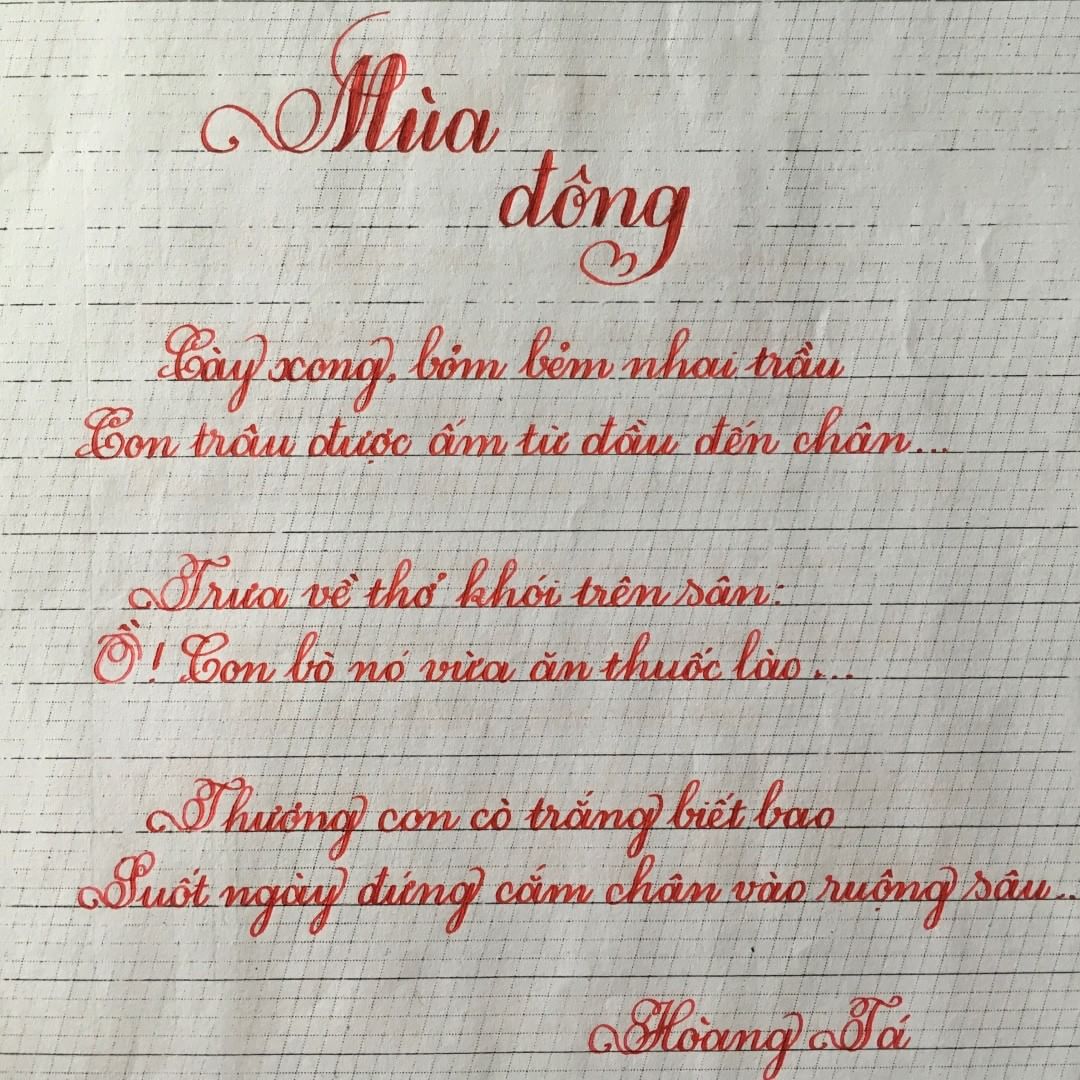 Mùa
đông
Cày xong, bỏm bẻm nhai trầu
Con trâu được ấm từ đầu đến chân...
Trưa về thở khói trên sân:
Ồ! Con bò nó vừa ăn thuốc lào...
Thương con cò trắng biết bao
Suốt ngày đứng cắm chân vào ruộng sâu..
Hoàng Tá